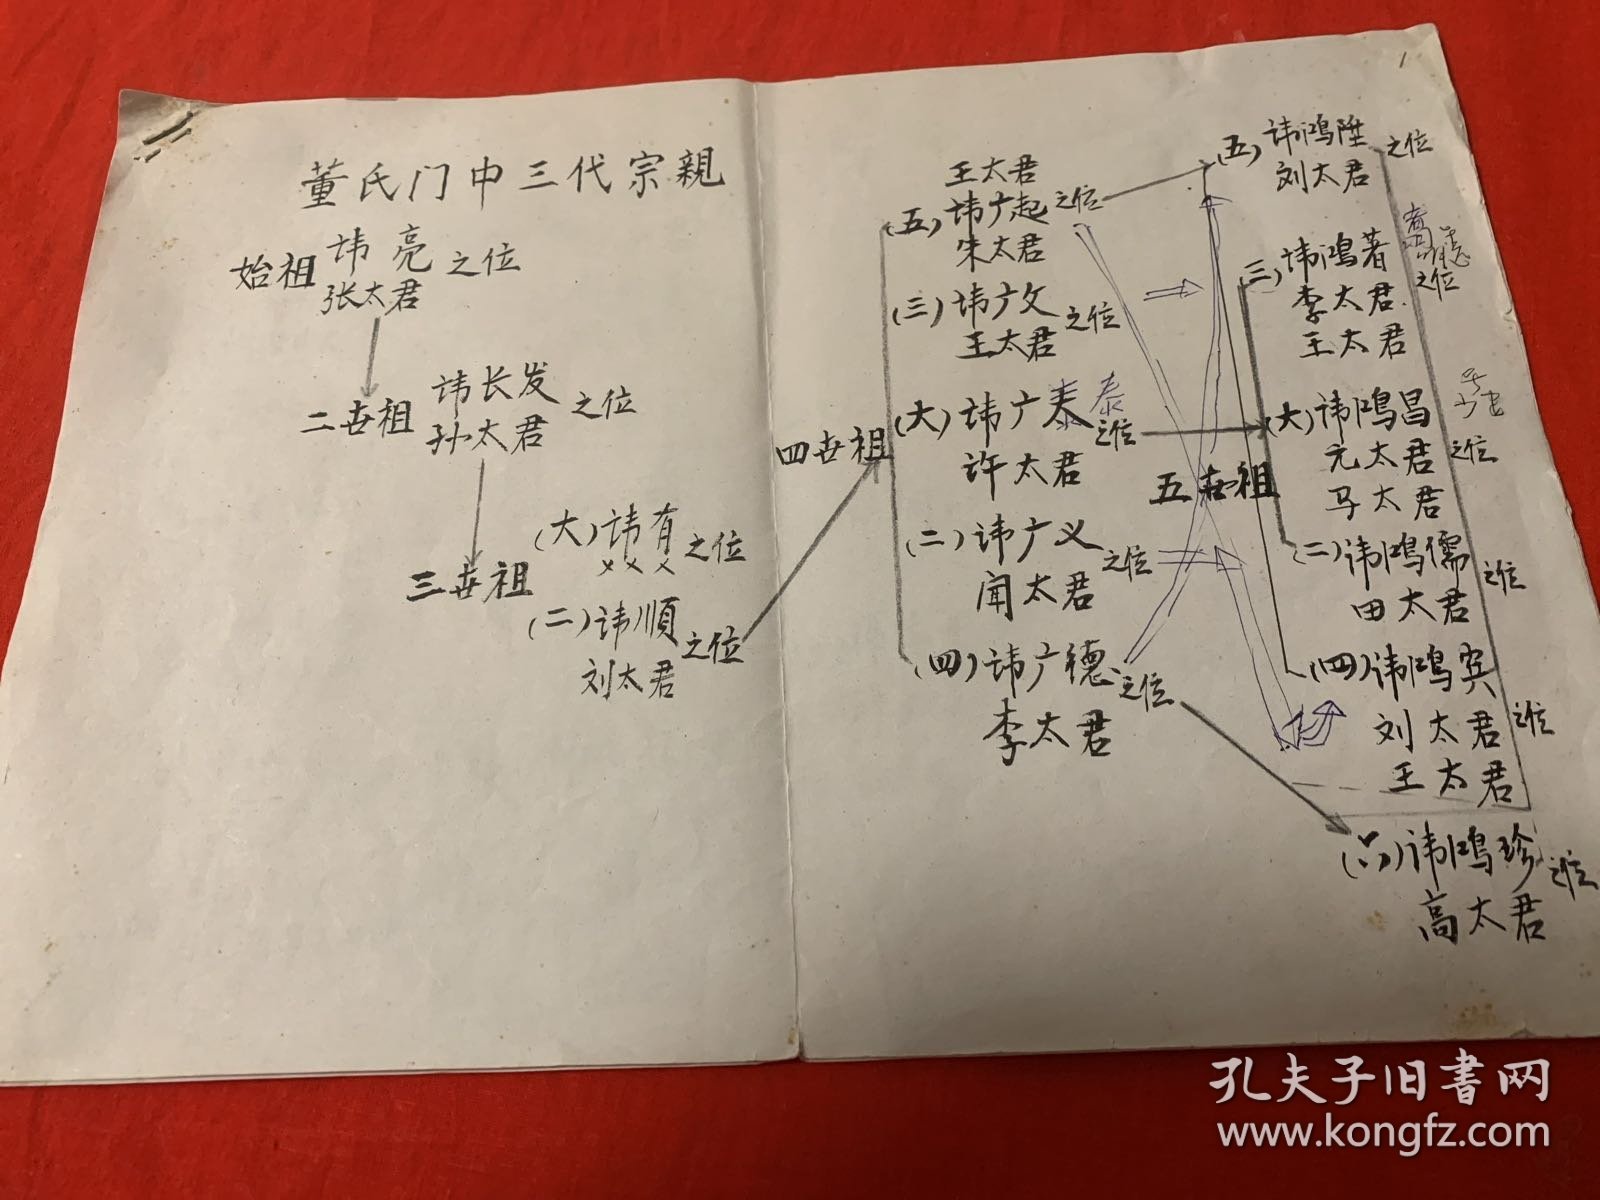 董氏门中三代宗親
始祖 讳亮 之位
张太君
二世祖 讳长发 之位
孙太君
三世祖
(大)讳有 之位
××
×
(二)讳順 之位
刘太君
四世祖
王太君
(五)讳广起 之位
朱太君
(三)讳广文 之位
王太君
(大)讳广泰 泰 之位
许太君
(二)讳广义 之位
闻太君
(四)讳广德 之位
李太君
1
五世祖
(五)讳鸿陞 之位
刘太君
(三)讳鸿著 之位
李太君
王太君
(大)讳鸿昌 之位
元太君
马太君
(二)讳鸿儒 之位
田太君
(四)讳鸿宾 之位
刘太君
王太君
(六)讳鸿珍 之位
高太君
孔夫子旧书网
www.kongfz.com